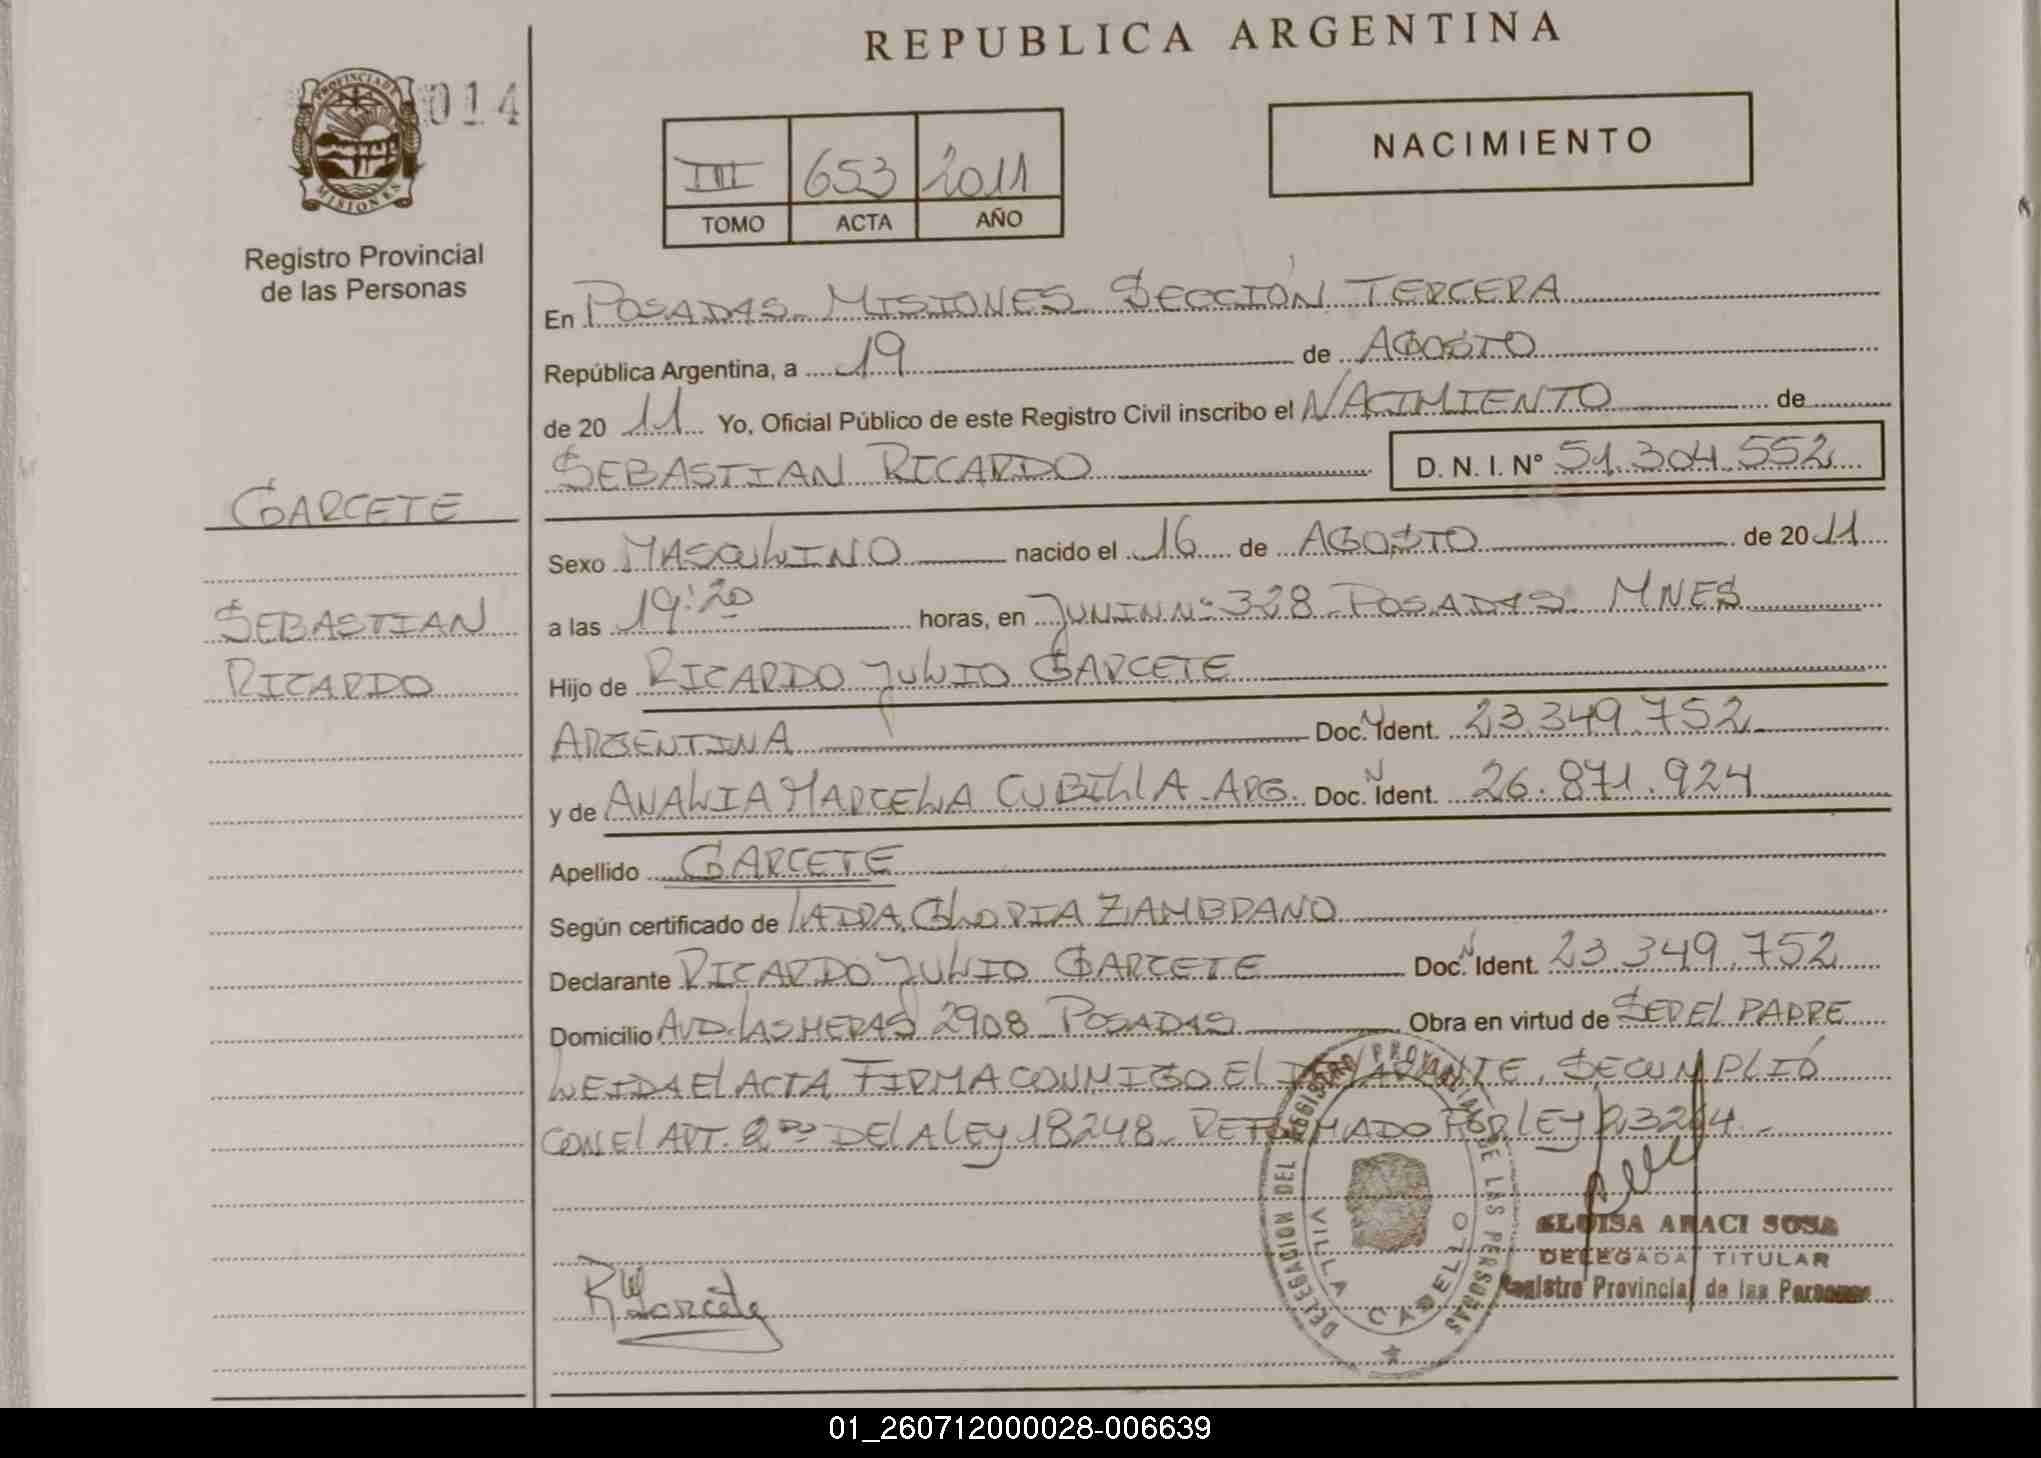 REPUBLICA ARGENTINA
PROVINCIA DE MISIONES
014
NACIMIENTO
III 653 2011
TOMO ACTA AÑO
Registro Provincial
de las Personas
En POSADAS MISIONES SECCIÓN TERCERA
República Argentina, a 19 de AGOSTO
de 20 11 Yo, Oficial Público de este Registro Civil inscribo el NACIMIENTO de
SEBASTIAN RICARDO D. N. I. Nº 51.304.552
GARCETE
SEBASTIAN
RICARDO
Sexo MASCULINO nacido el 16 de AGOSTO de 20 11
a las 19:20 horas, en JUNIN Nº 328 POSADAS MNES
Hijo de RICARDO JULIO GARCETE
ARGENTINA Doc. N Ident. 23.349.752
y de ANALIA MARCELA CUBILLA ARG. Doc. N Ident. 26.871.924
Apellido GARCETE
Según certificado de LA DRA. GLORIA ZAMBRANO
Declarante RICARDO JULIO GARCETE Doc. N Ident. 23.349.752
Domicilio AVD. LAS HERAS 2908 POSADAS Obra en virtud de SER EL PADRE
LEIDA EL ACTA FIRMA CONMIGO EL DECLARANTE. SE CUMPLIÓ
CON EL ART. 2DO DE LA LEY 18248 REFORMADO POR LEY 23264
DELEGACION DEL REGISTRO PROVINCIAL DE LAS PERSONAS
VILLA CABELLO
ELOISA ARACI SOSA
DELEGADA TITULAR
Registro Provincial de las Personas
Garcete
01_260712000028-006639